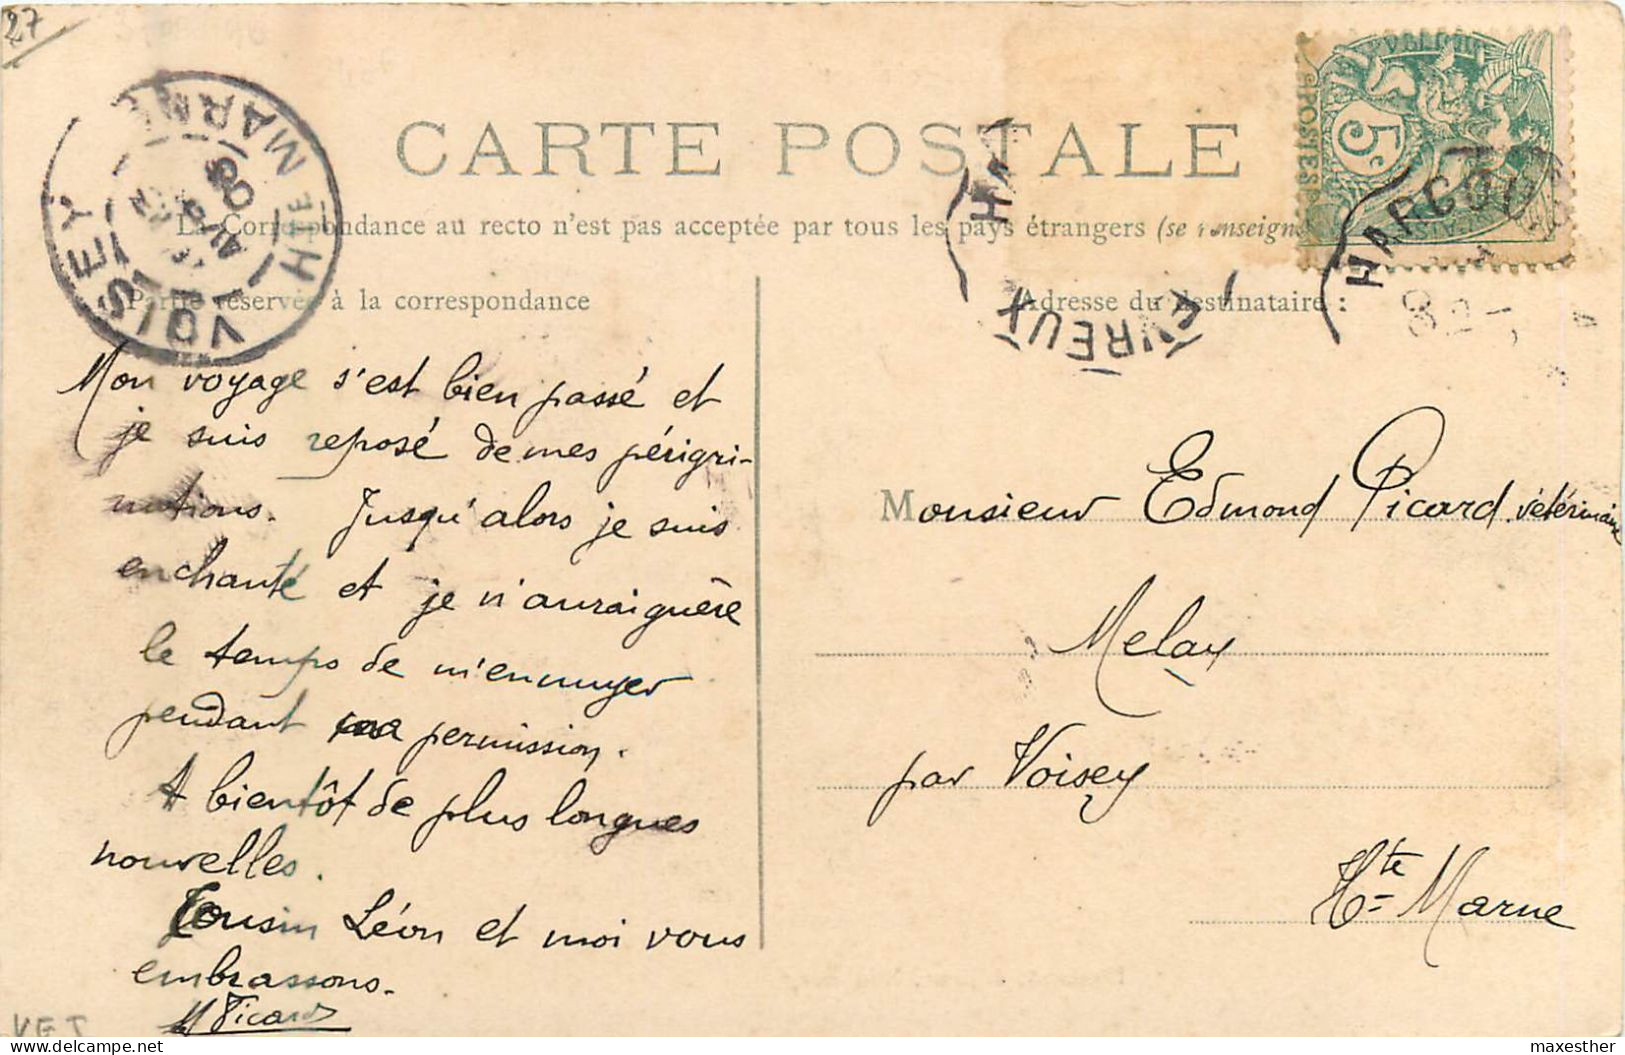 27
CARTE POSTALE
La Correspondance au recto n'est pas acceptée par tous les pays étrangers (se renseigne
Partie réservée à la correspondance
Adresse du destinataire :
VOISEY
HTE MARNE
08
5c
POSTES
HARCOURT
EVREUX
Mon voyage s'est bien passé et
je suis reposé de mes périgri-
nations. Jusqu'alors je suis
enchanté et je n'aurai guère
le temps de m'ennuyer
pendant ma permission.
A bientôt de plus longues
nouvelles.
Cousin Léon et moi vous
embrassons.
M Picard
Monsieur Edmond Picard vétérinaire
Melay
par Voisey
Hte Marne
VET
maxesther